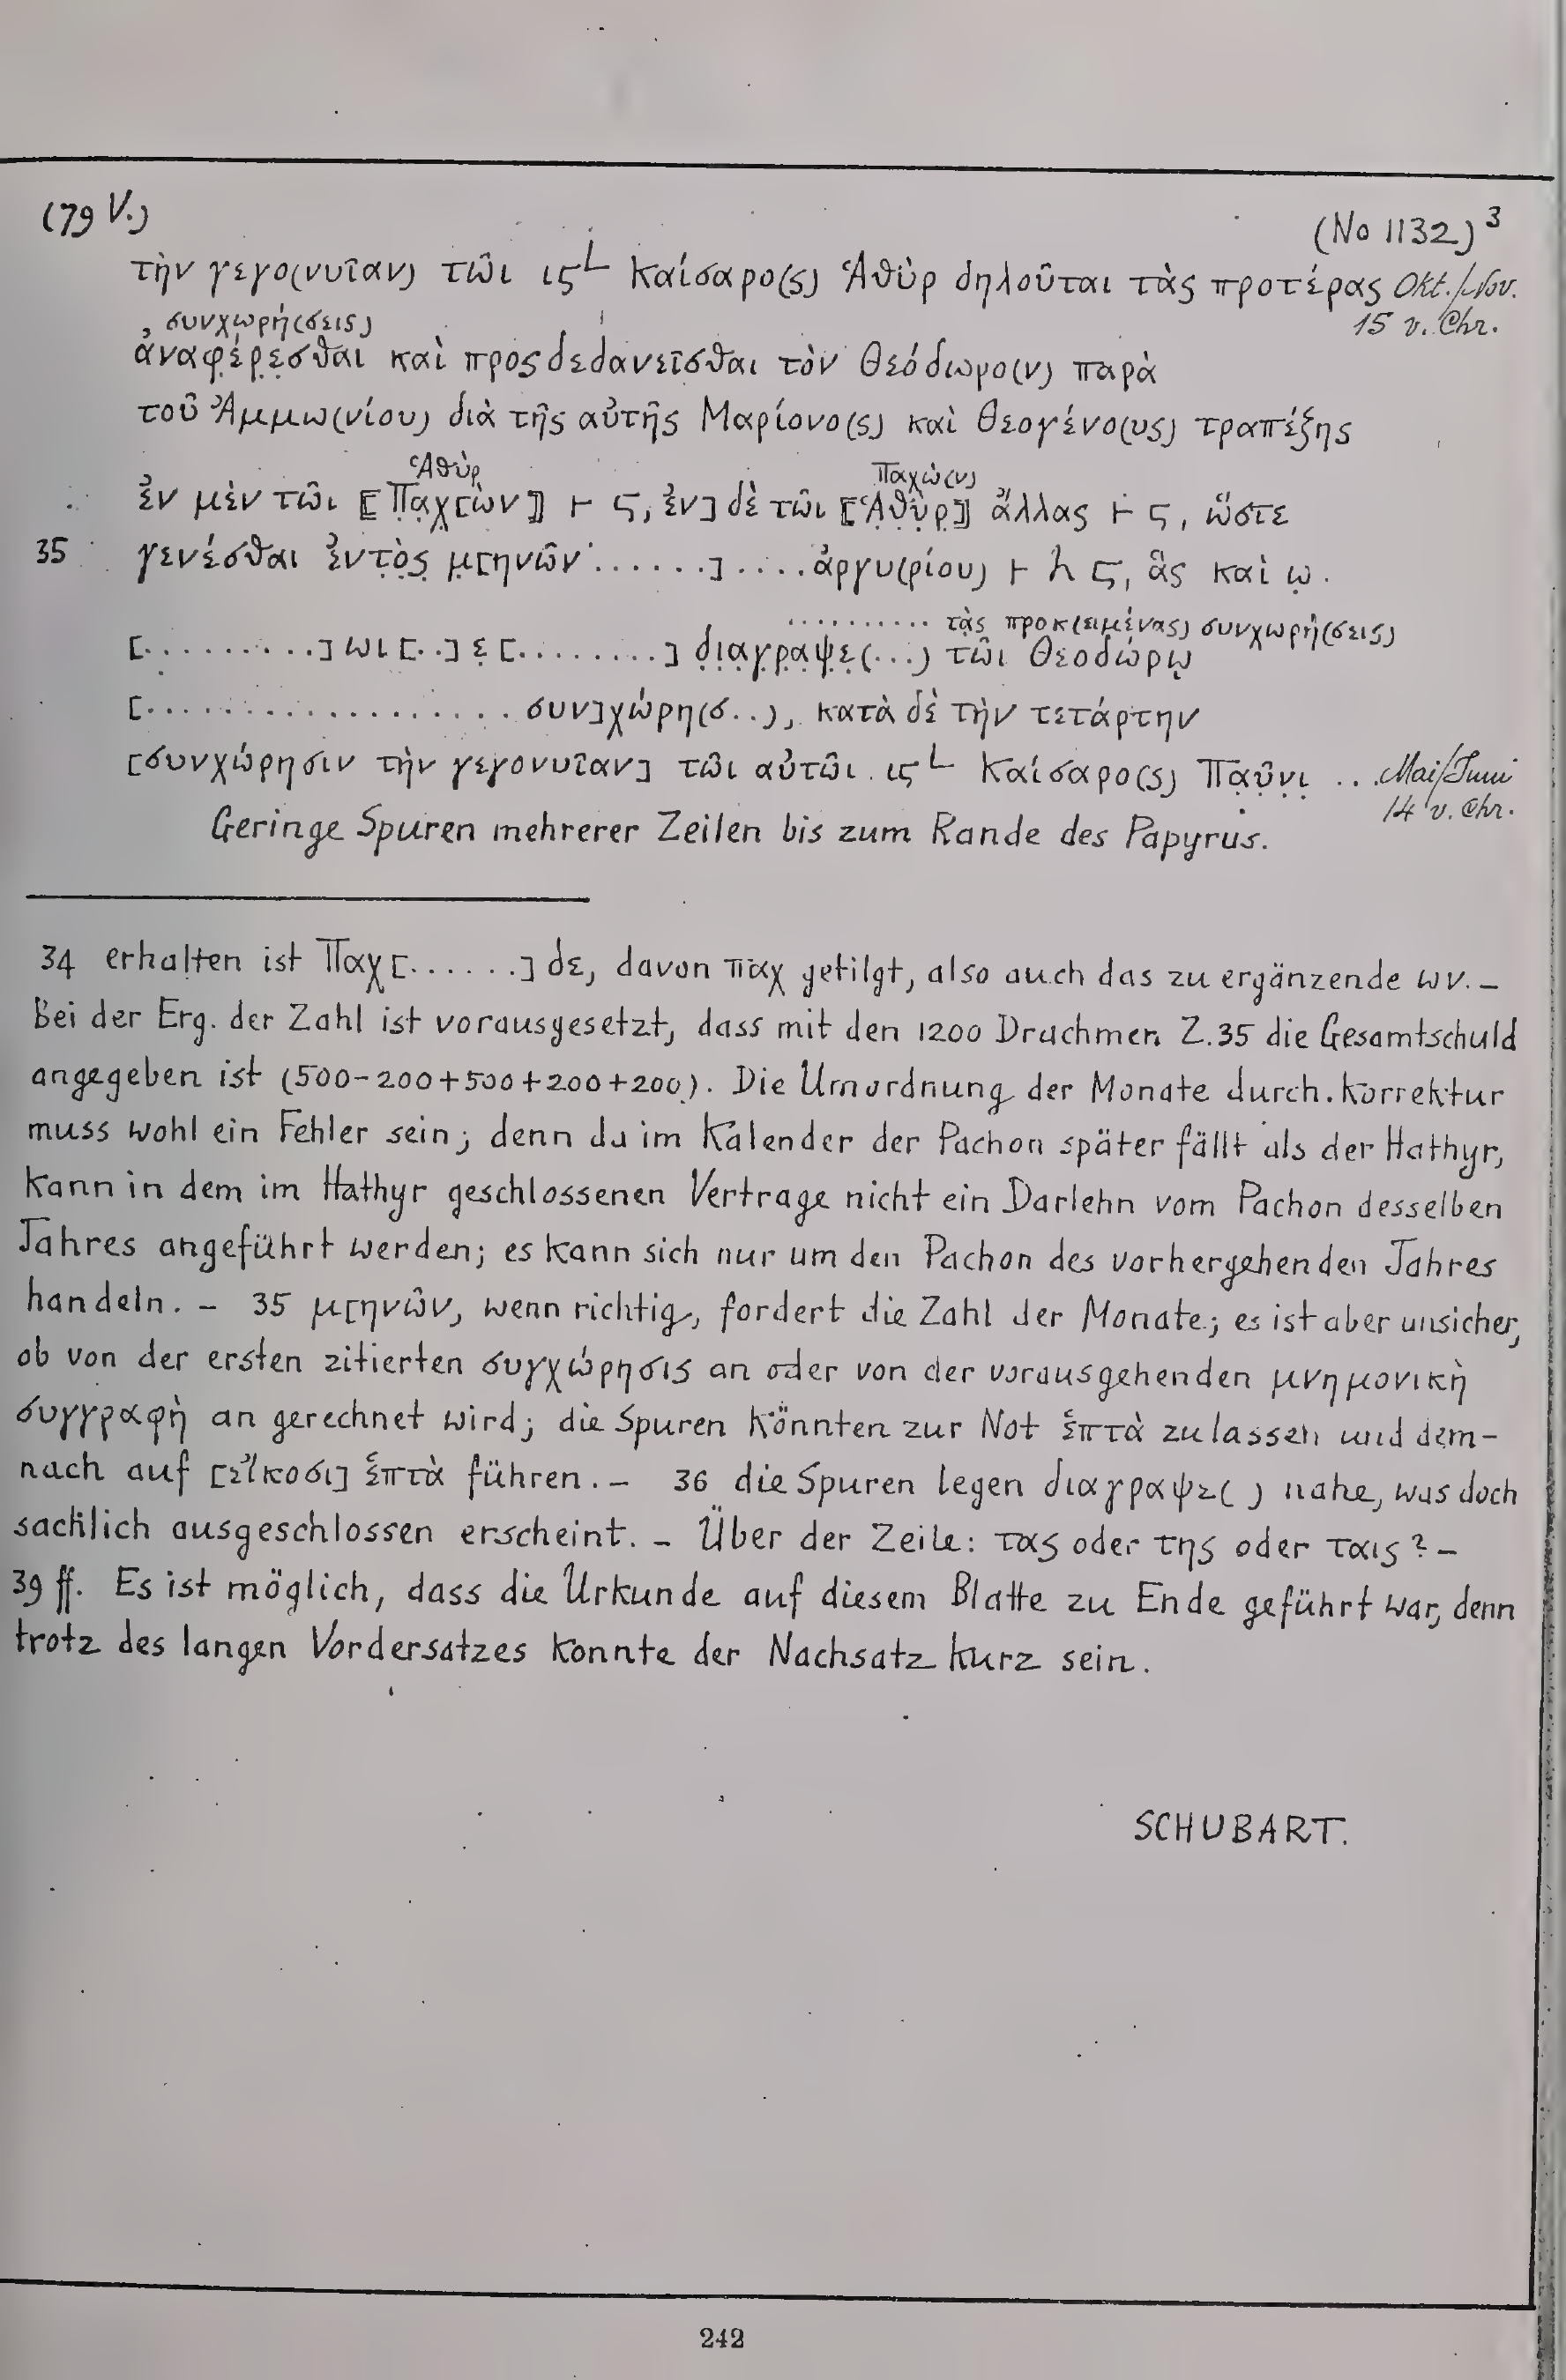 (79 V.)
(No 1132) 3
τὴν γεγο(νυῖαν) τῶι ιϛ L Καίσαρο(ς) Ἁθὺρ δηλοῦται τὰς προτέρας Okt./Nov.
15 v. Chr.
συνχωρή(σεις)
ἀναφ̣έ̣ρ̣ε̣σθαι καὶ προσδεδανεῖσθαι τὸν Θεόδωρο(ν) παρὰ
τοῦ Ἀμμω(νίου) διὰ τῆς αὐτῆς Μαρίονο(ς) καὶ Θεογένο(υς) τραπέζης
Ἁθὺρ Παχὼ(ν)
ἐν μὲν τῶι ⟦Π̣α̣χ̣[ὼν⟧ ⊢ Ϛ, ἐν] δὲ τῶι ⟦Ἁ̣θ̣ὺ̣ρ̣⟧ ἄλλας ⊢ Ϛ, ὥστε
35 γενέσθαι ἐντ̣ὸ̣ς̣ μ̣[ηνῶν ......] .... ἀργυ(ρίου) ⊢ λ Ϛ, ἃς καὶ ω̣ .
.......... τὰ̣ς προκ(ειμένας) συνχωρή(σεις)
[..........] ωι [..] ε̣ [........] δ̣ι̣α̣γ̣ρ̣α̣ψ̣ε̣(...) τῶι Θεοδώρῳ
[................... συν]χώρη(σ..), κατὰ δὲ τὴν τετάρτην
[συνχώρησιν τὴν γεγονυῖαν] τῶι αὐτῶι ιϛ L Καίσαρο(ς) Πα̣ῦ̣ν̣ι̣ .. Mai/Juni
14 v. Chr.
Geringe Spuren mehrerer Zeilen bis zum Rande des Papyrus.
34 erhalten ist Παχ[......] δε, davon παχ getilgt, also auch das zu ergänzende ων. –
Bei der Erg. der Zahl ist vorausgesetzt, dass mit den 1200 Drachmen Z. 35 die Gesamtschuld
angegeben ist (500-200+500+200+200). Die Umordnung der Monate durch Korrektur
muss wohl ein Fehler sein; denn da im Kalender der Pachon später fällt als der Hathyr,
kann in dem im Hathyr geschlossenen Vertrage nicht ein Darlehn vom Pachon desselben
Jahres angeführt werden; es kann sich nur um den Pachon des vorhergehenden Jahres
handeln. – 35 μ[ηνῶν, wenn richtig, fordert die Zahl der Monate; es ist aber unsicher,
ob von der ersten zitierten συγχώρησις an oder von der vorausgehenden μνημονικὴ
συγγραφὴ an gerechnet wird; die Spuren könnten zur Not ἑπτὰ zulassen und dem-
nach auf [εἴκοσι] ἑπτὰ führen. – 36 die Spuren legen διαγραψε( ) nahe, was doch
sachlich ausgeschlossen erscheint. – Über der Zeile: τας oder της oder ταις? –
39 ff. Es ist möglich, dass die Urkunde auf diesem Blatte zu Ende geführt war, denn
trotz des langen Vordersatzes konnte der Nachsatz kurz sein.
SCHUBART.
242